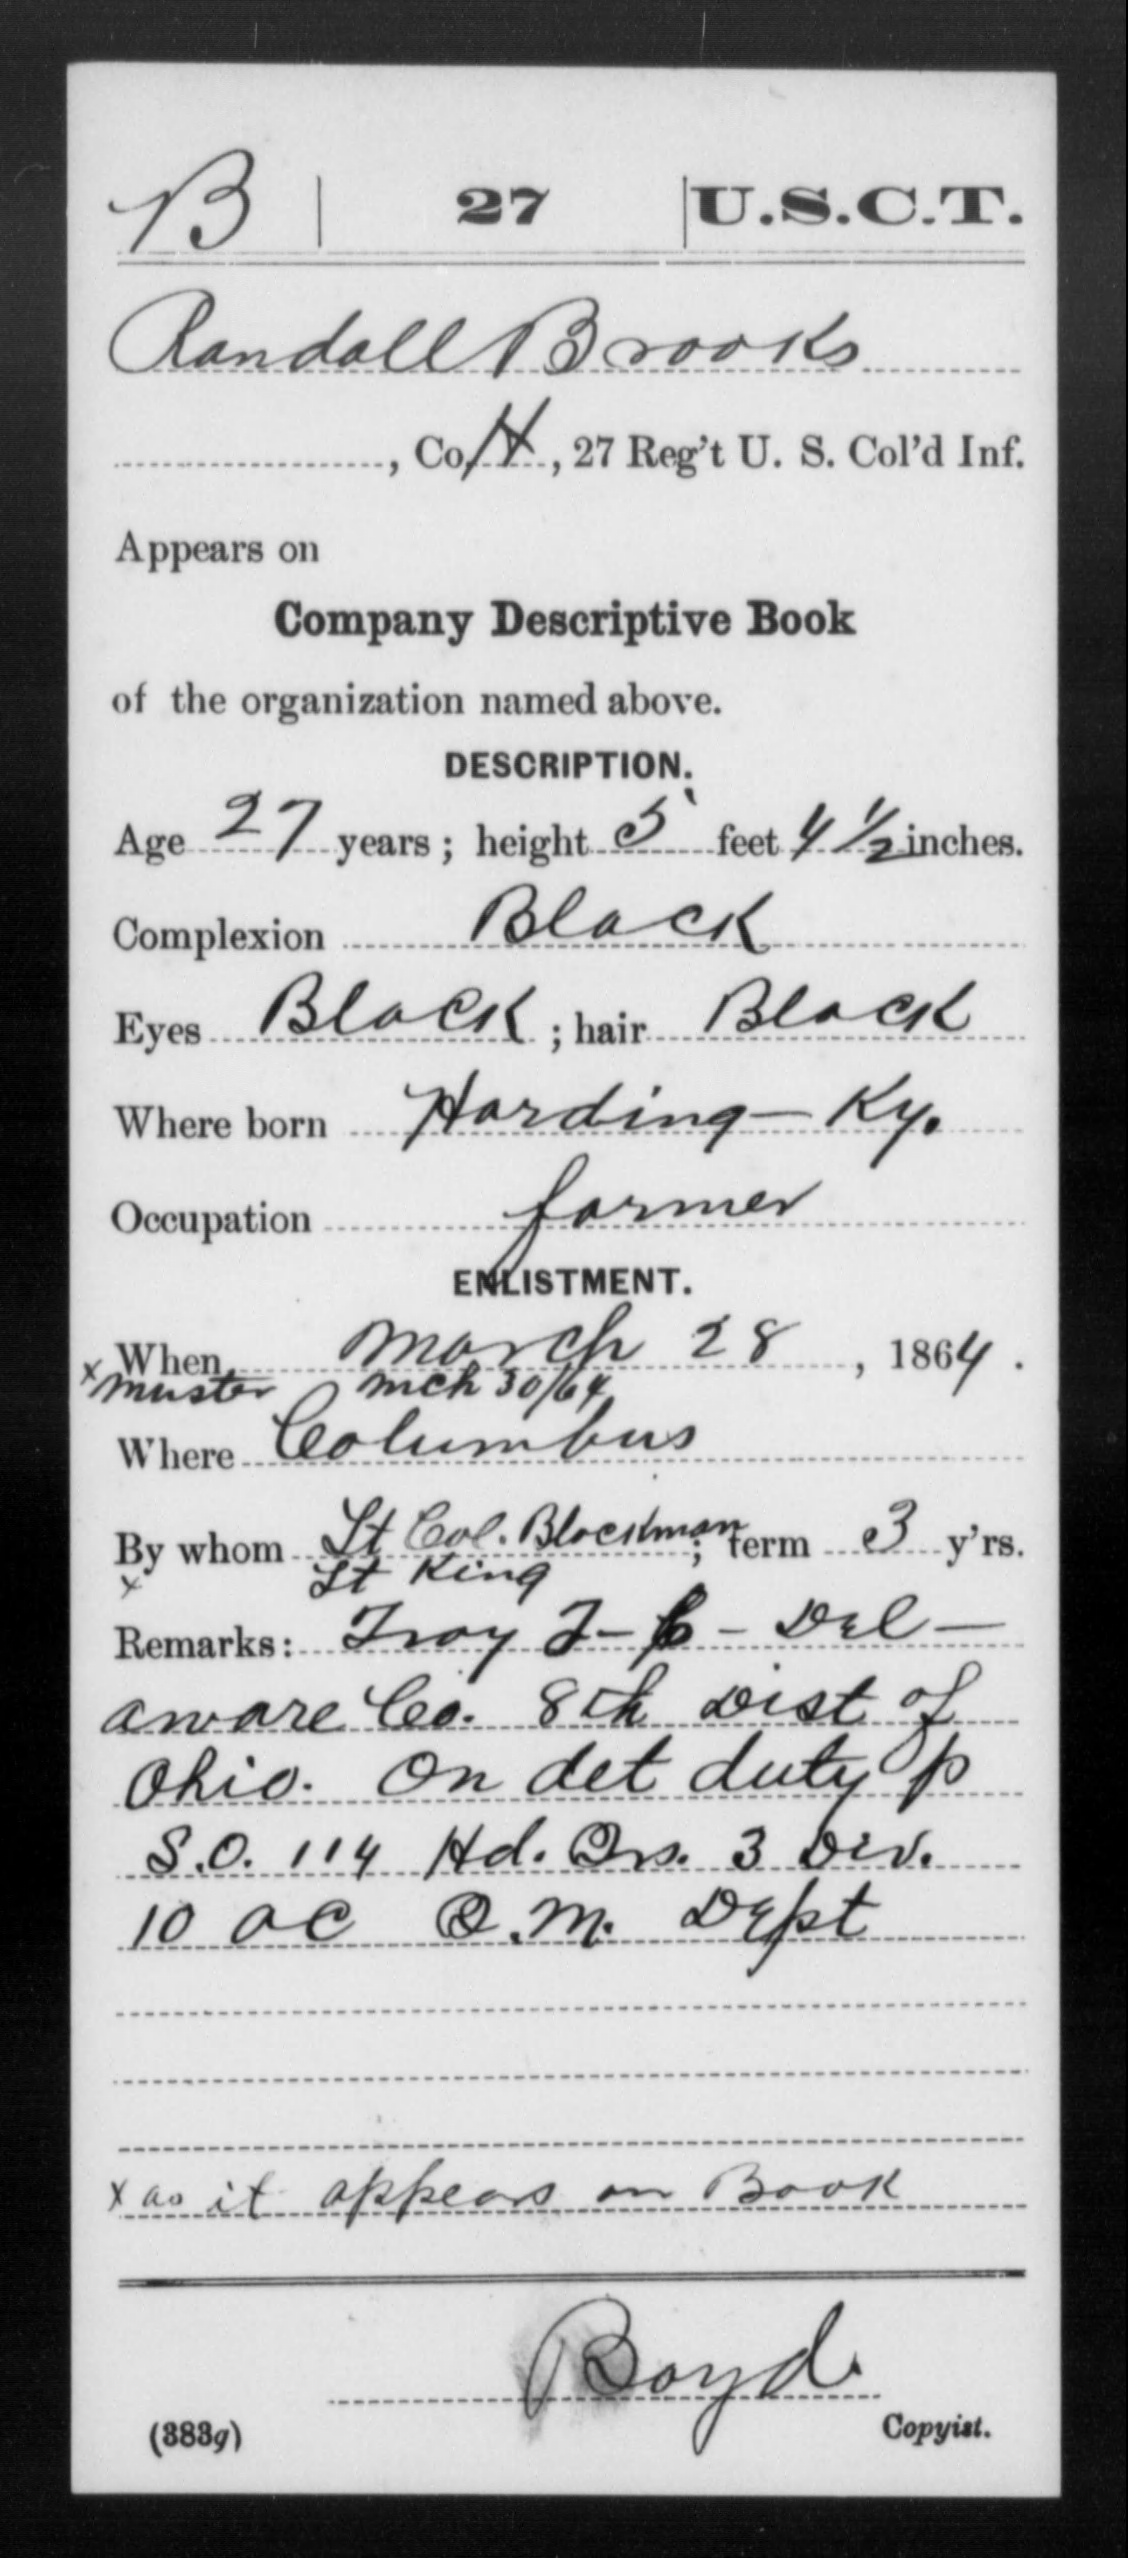 B | 27 | U.S.C.T.
Randall Brooks
, Co. H, 27 Reg't U. S. Col'd Inf.
Appears on
Company Descriptive Book
of the organization named above.
DESCRIPTION.
Age 27 years; height 5 feet 4 1/2 inches.
Complexion Black
Eyes Black; hair Black
Where born Harding - Ky.
Occupation farmer
ENLISTMENT.
x When March 28, 1864.
muster Mch 30/64
Where Columbus
By whom Lt Col. Blackman; term 3 y'rs.
x Lt King
Remarks: Troy T- - Del-
aware Co. 8th Dist of
Ohio. On det duty p
S.O. 114 Hd. Qrs. 3 Div.
10 A C Q.M. Dept
x as it appears on Book
Boyd
(383g) Copyist.